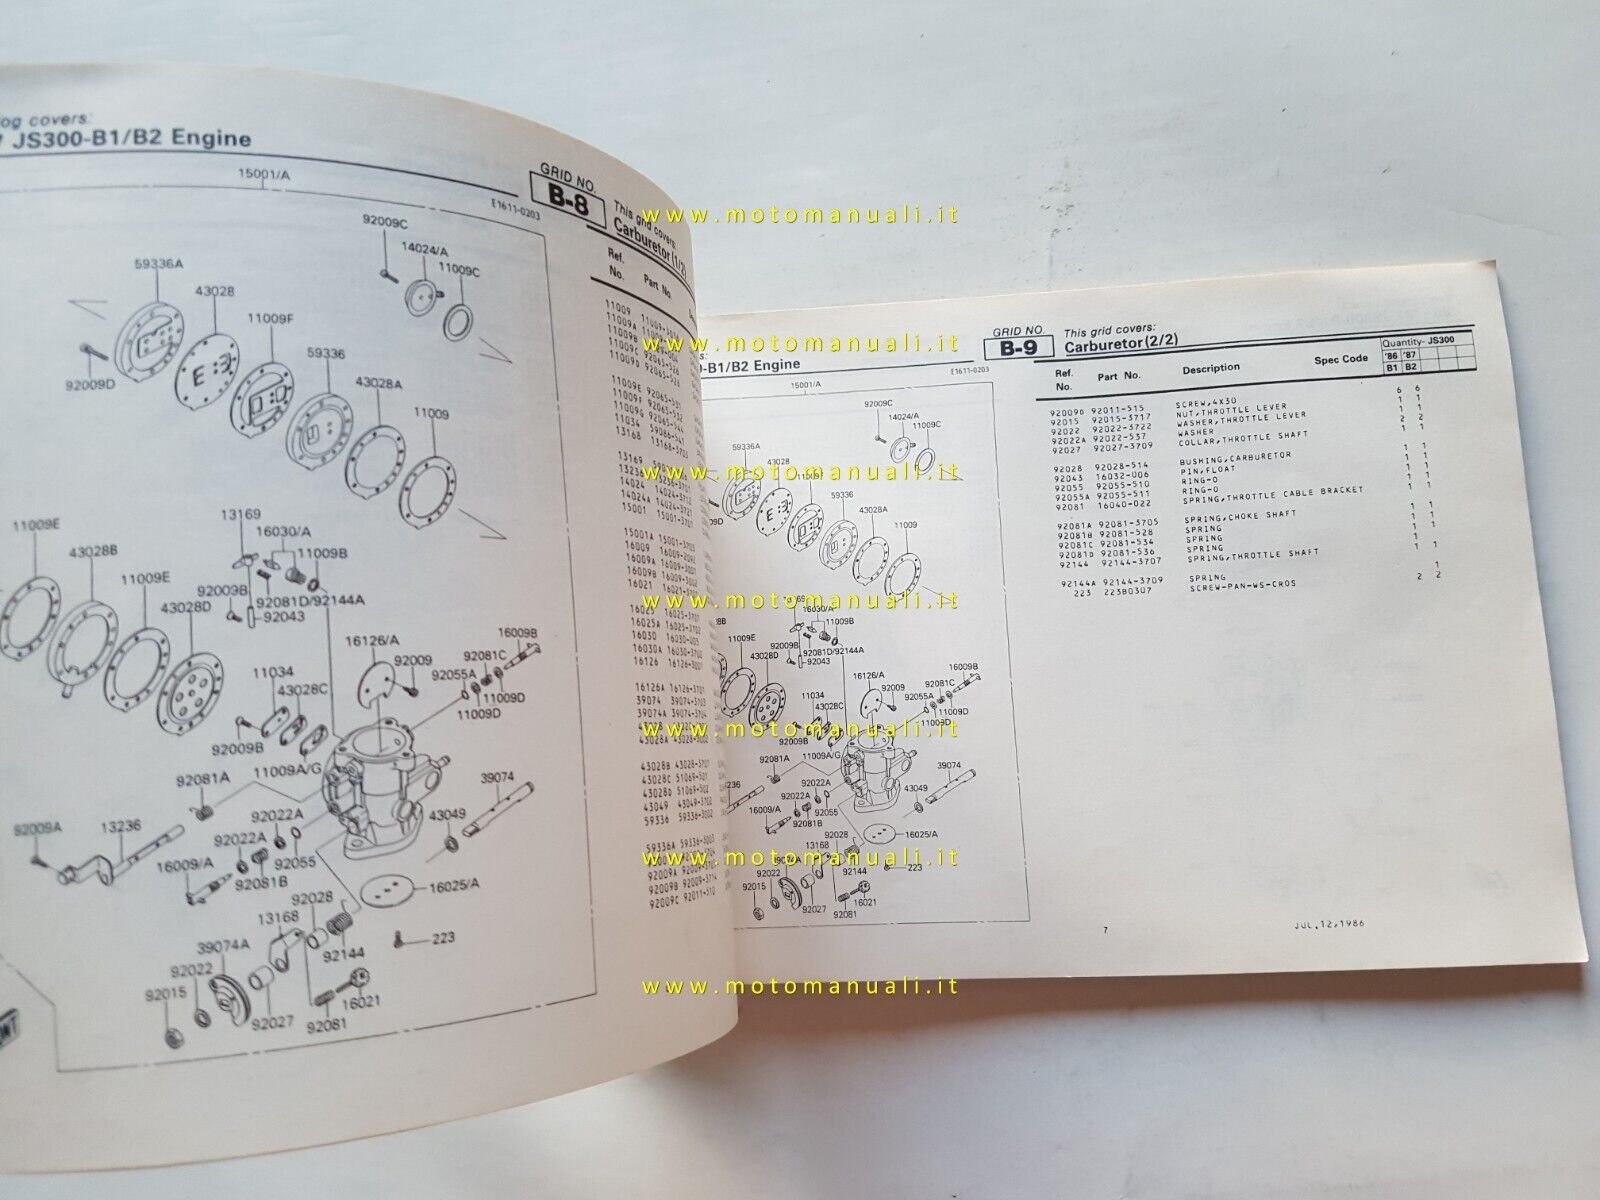 log covers:
JS300-B1/B2 Engine
15001/A
E1611-0203
92009C
14024/A
11009C
59336A
43028
11009F
59336
43028A
11009
92009D
11009E
43028B
11009E
43028D
13169
16030/A
11009B
92009B
92081D/92144A
92043
16126/A
92009
92055A
92081C
16009B
11009D
11009D
11034
43028C
92009B
11009A/G
92081A
39074
43049
92009A
13236
92022A
92022A
16009/A
92055
92081B
16025/A
92028
13168
92144
223
39074A
92022
92015
92027
92081
16021
GRID NO.
B-8
This grid covers:
Carburetor (1/2)
Ref. No.
Part No.
11009
11009A
11009B
11009C 92065-526
11009D
11009E 92065-531
11009F 92065-532
11009G
11034 59086-541
13168 13168-3703
13169
13236 13236-3701
14024 14024-3712
14024A
15001 15001-3701
15001A 15001-3703
16009 16009-2092
16009A 16009-3001
16009B 16009-3002
16021
16025 16025-3701
16025A 16025-3702
16030 16030-005
16030A 16030-3702
16126 16126-3001
16126A 16126-3701
39074 39074-3703
39074A 39074-3704
43028
43028A 43028-3002
43028B 43028-3707
43028C 51069-501
43028D 51069-502
43049 43049-3702
59336 59336-3002
59336A 59336-3003
92009A
92009B 92009-3714
92009C 92011-510
-B1/B2 Engine
15001/A
E1611-0203
92009C
14024/A
11009C
59336A
43028
11009F
59336
43028A
11009
11009E
43028D
16030/A
11009B
92009B
92081D/92144A
92043
16126/A
92009
92055A
92081C
16009B
11009D
11034
43028C
92009B
11009A/G
92081A
39074
43049
92022A
92022A
16009/A
92055
92081B
16025/A
92028
13168
92144
223
39074A
92022
92015
92027
92081
16021
GRID NO.
B-9
This grid covers:
Carburetor (2/2)
Ref. No.
Part No.
Description
Spec Code
Quantity- JS300
'86 '87
B1 B2
92009D 92011-515 SCREW,4X30 6 6
92015 92015-3717 NUT,THROTTLE LEVER 1 1
92022 92022-3722 WASHER,THROTTLE LEVER 1 1
92022A 92022-537 WASHER 2 2
92027 92027-3709 COLLAR,THROTTLE SHAFT 1 1
92028 92028-514 BUSHING,CARBURETOR 1 1
92043 16032-006 PIN,FLOAT 1 1
92055 92055-510 RING-O 1 1
92055A 92055-511 RING-O 1 1
92081 16040-022 SPRING,THROTTLE CABLE BRACKET 1 1
92081A 92081-3705 SPRING,CHOKE SHAFT 1 1
92081B 92081-528 SPRING 1 1
92081C 92081-534 SPRING 1 1
92081D 92081-536 SPRING 1
92144 92144-3707 SPRING,THROTTLE SHAFT 1 1
92144A 92144-3709 SPRING 1
223 223B0307 SCREW-PAN-WS-CROS 2 2
7
JUL,12,1986
www.motomanuali.it
www.motomanuali.it
www.motomanuali.it
www.motomanuali.it
www.motomanuali.it
www.motomanuali.it
www.motomanuali.it